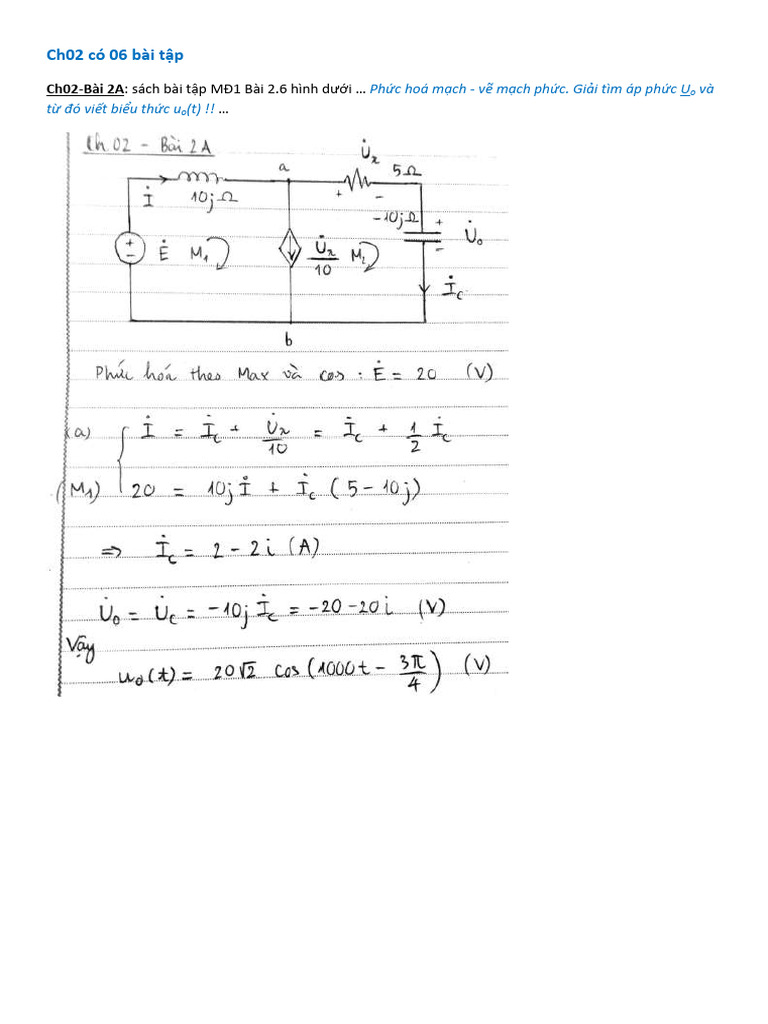 Ch02 có 06 bài tập
Ch02-Bài 2A: sách bài tập MĐ1 Bài 2.6 hình dưới ... Phức hoá mạch - vẽ mạch phức. Giải tìm áp phức Uₒ và
từ đó viết biểu thức uₒ(t) !! ...
Ch.02 - Bài 2A
a U̇x 5Ω
İ 10jΩ + - -10jΩ +
+ - Ė M₁ U̇x/10 M₂ U̇₀
-
İc
b
Phức hóa theo Max và cos : Ė = 20 (V)
(a) İ = İc + U̇x/10 = İc + 1/2 İc
(M₁) 20 = 10j İ + İc (5 - 10j)
=> İc = 2 - 2i (A)
U̇₀ = U̇c = -10j İc = -20 - 20i (V)
Vậy
u₀(t) = 20√2 cos(1000t - 3π/4) (V)